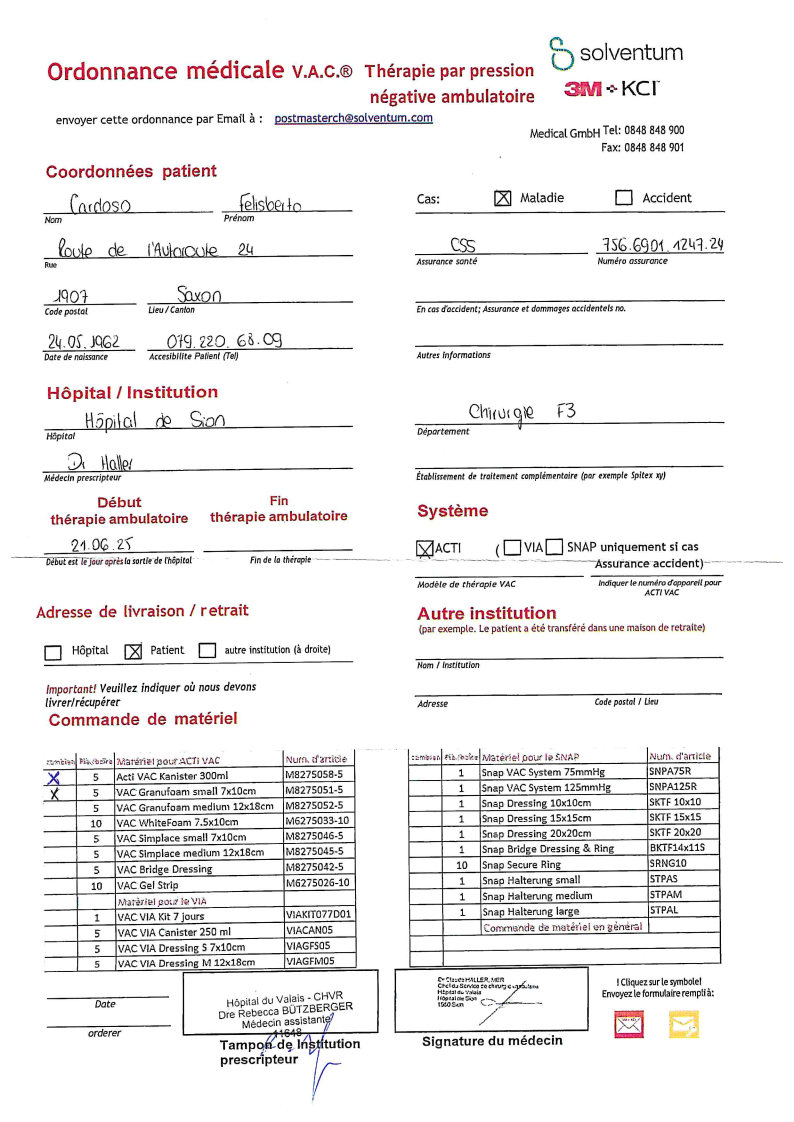 Ordonnance médicale V.A.C.® Thérapie par pression négative ambulatoire
solventum
3M KCI
envoyer cette ordonnance par Email à : postmasterch@solventum.com
Medical GmbH Tel: 0848 848 900
Fax: 0848 848 901
Coordonnées patient
Cardoso Felisberto
Nom Prénom
Route de l'Autoroute 24
Rue
1907 Saxon
Code postal Lieu / Canton
24.05.1962 079.220.68.09
Date de naissance Accesibilite Patient (Tel)
Cas: Maladie Accident
CSS 756.6901.1247.24
Assurance santé Numéro assurance
En cas d'accident; Assurance et dommages accidentels no.
Autres informations
Hôpital / Institution
Hôpital de Sion
Hôpital
Dr Haller
Médecin prescripteur
Chirurgie F3
Département
Établissement de traitement complémentaire (par exemple Spitex xy)
Début thérapie ambulatoire
Fin thérapie ambulatoire
21.06.25
Début est le jour après la sortie de l'hôpital Fin de la thérapie
Système
ACTI ( VIA SNAP uniquement si cas
Assurance accident)
Modèle de thérapie VAC Indiquer le numéro d'appareil pour
ACTI VAC
Adresse de livraison / retrait
Hôpital Patient autre institution (à droite)
Important! Veuillez indiquer où nous devons
livrer/récupérer
Autre institution
(par exemple. Le patient a été transféré dans une maison de retraite)
Nom / Institution
Adresse Code postal / Lieu
Commande de matériel
combien Pib./boîte Matériel pour ACTi VAC Num. d'article
X 5 Acti VAC Kanister 300ml M8275058-5
X 5 VAC Granufoam small 7x10cm M8275051-5
5 VAC Granufoam medium 12x18cm M8275052-5
10 VAC WhiteFoam 7.5x10cm M6275033-10
5 VAC Simplace small 7x10cm M8275046-5
5 VAC Simplace medium 12x18cm M8275045-5
5 VAC Bridge Dressing M8275042-5
10 VAC Gel Strip M6275026-10
Matériel pour le VIA
1 VAC VIA Kit 7 jours VIAKIT077D01
5 VAC VIA Canister 250 ml VIACAN05
5 VAC VIA Dressing S 7x10cm VIAGFS05
5 VAC VIA Dressing M 12x18cm VIAGFM05
combien Pib./boîte Matériel pour le SNAP Num. d'article
1 Snap VAC System 75mmHg SNPA75R
1 Snap VAC System 125mmHg SNPA125R
1 Snap Dressing 10x10cm SKTF 10x10
1 Snap Dressing 15x15cm SKTF 15x15
1 Snap Dressing 20x20cm SKTF 20x20
1 Snap Bridge Dressing & Ring BKTF14x11S
10 Snap Secure Ring SRNG10
1 Snap Halterung small STPAS
1 Snap Halterung medium STPAM
1 Snap Halterung large STPAL
Commande de matériel en général
Date
orderer
Hôpital du Valais - CHVR
Dre Rebecca BÜTZBERGER
Médecin assistante
11648
Tampon de Institution
prescripteur
Dr Claude HALLER, MER
Chef du Service de chirurgie vasculaire
Hôpital du Valais
Hôpital de Sion
1950 Sion
Signature du médecin
! Cliquez sur le symbole!
Envoyez le formulaire rempli à: